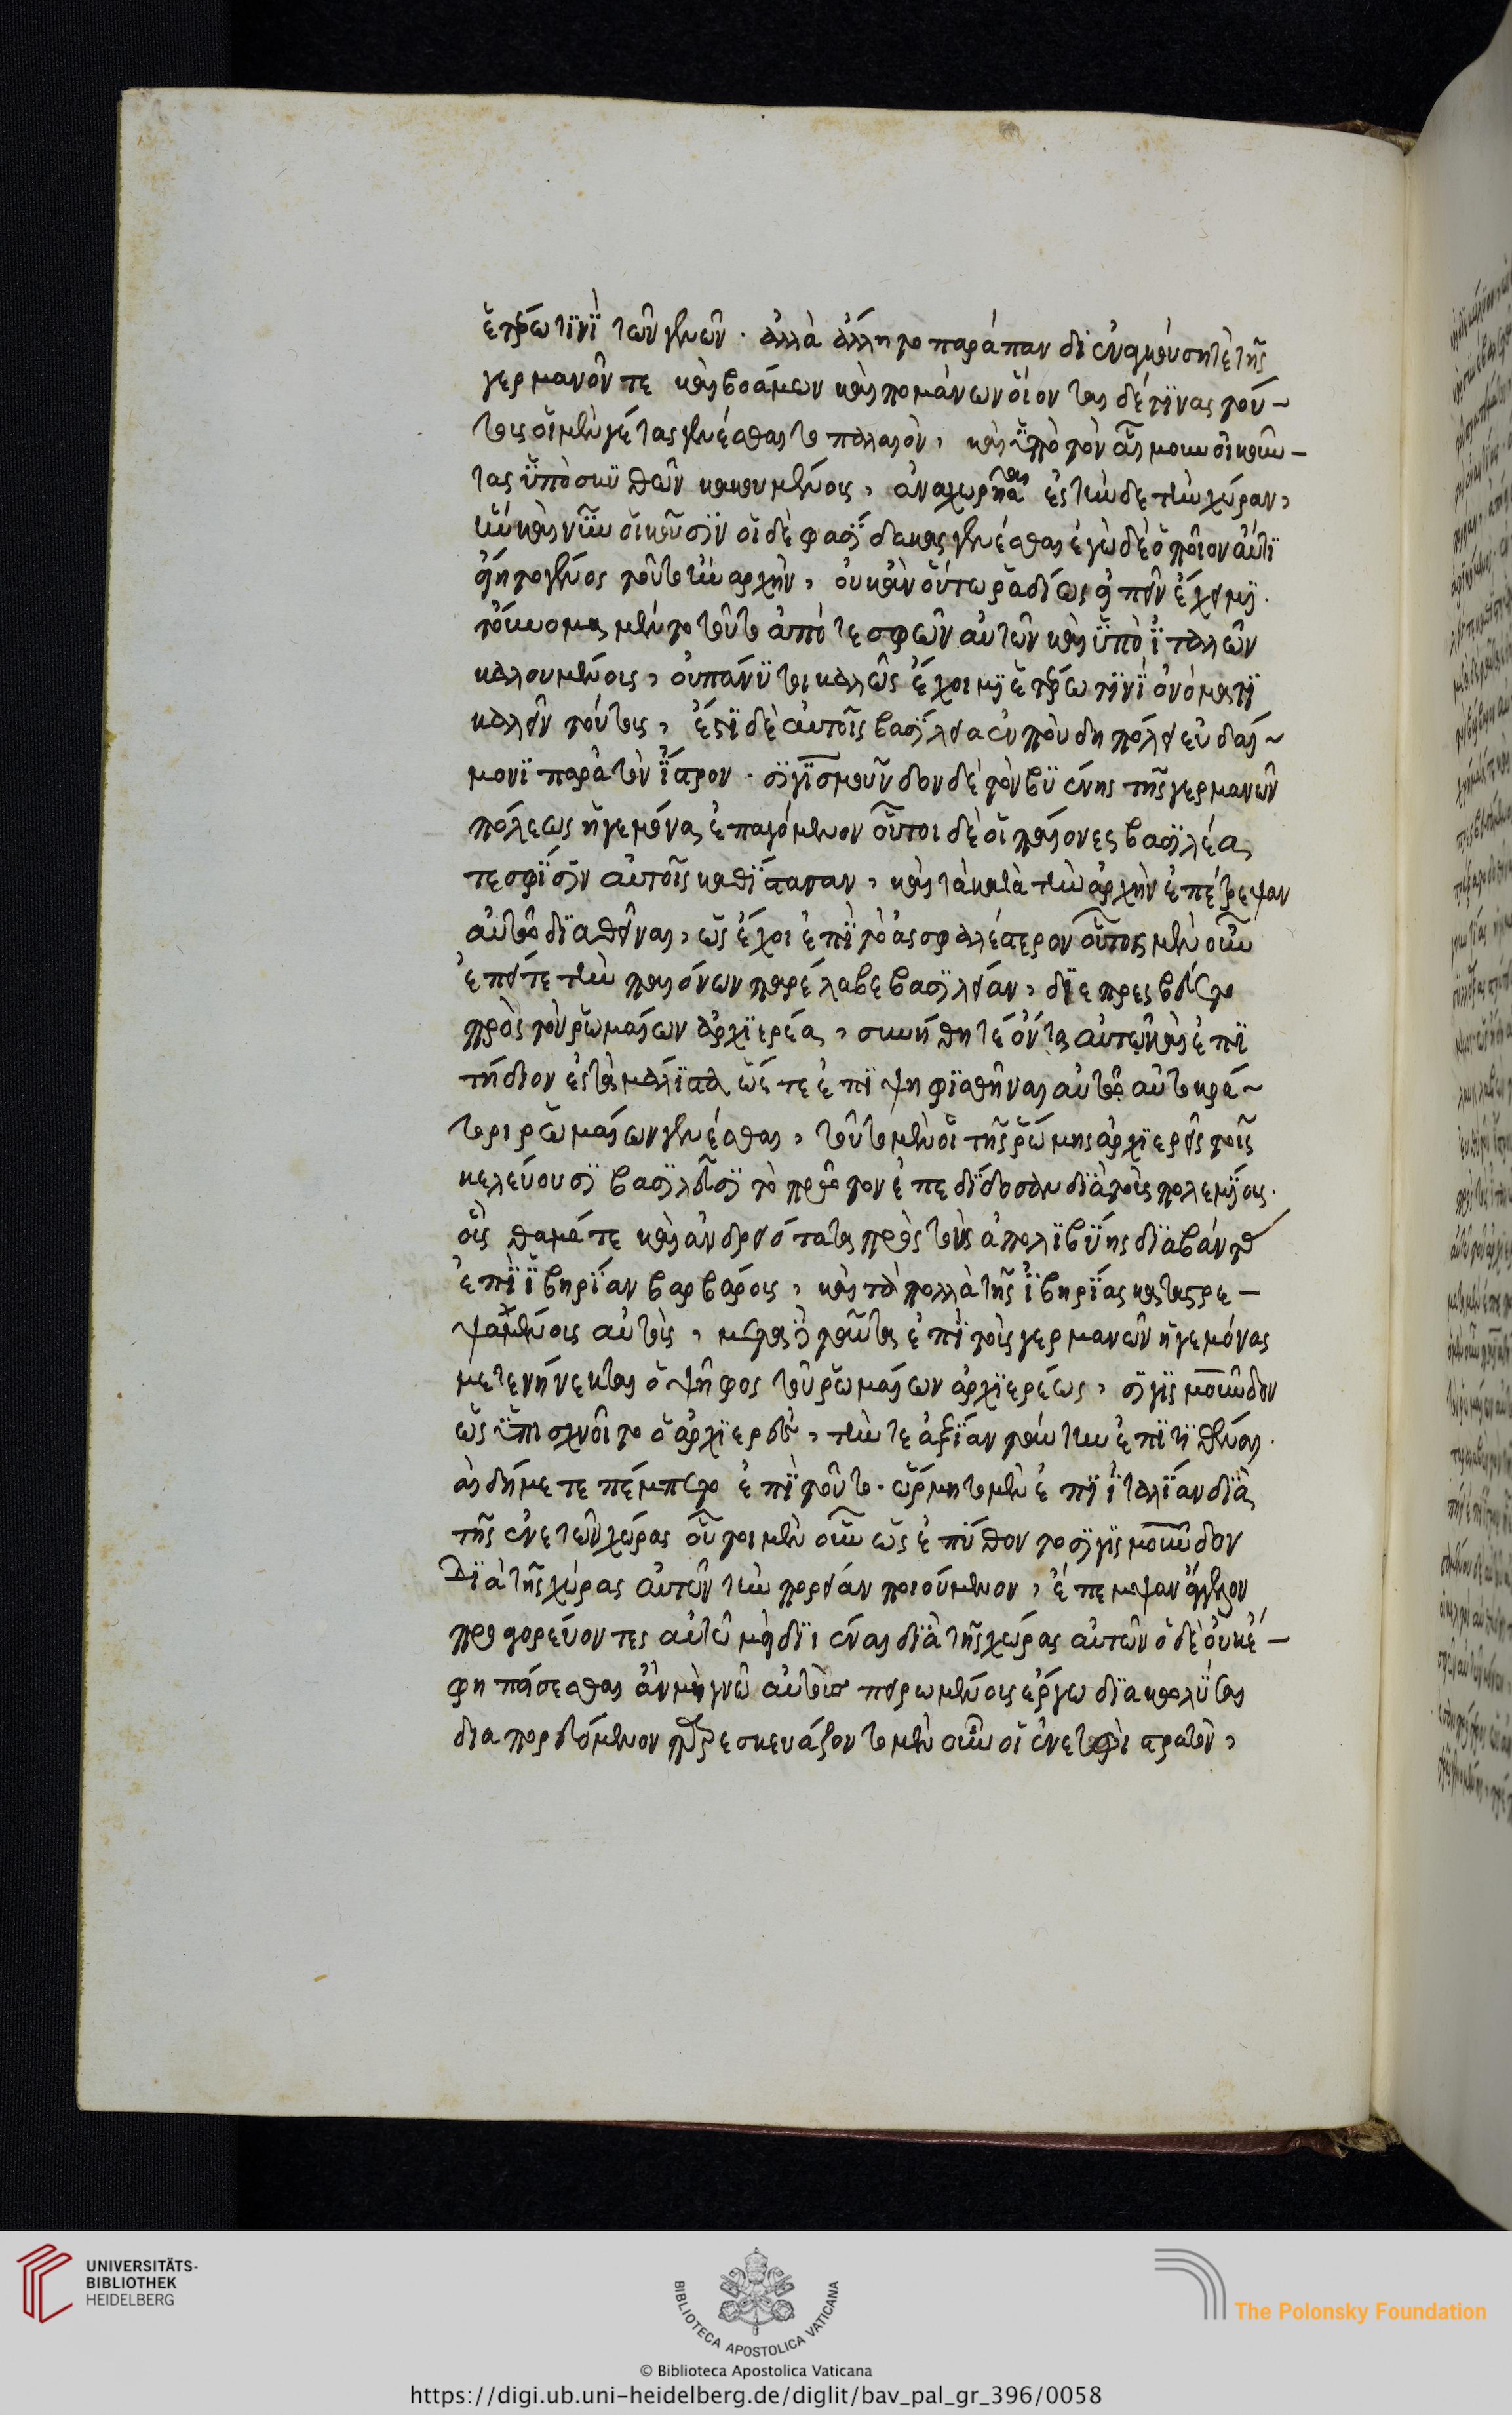 ἑτέρω τινὶ τῶν γενῶν. ἀλλὰ ἄλλη το παράπαν διενεγκούση τὲ τῆς
γερμανῶν τε καὶ βοέμων καὶ πομάνων οἴονται δέ τινας τού-
τους οἱ μὲν γέτας γενέσθαι το παλαιὸν, καὶ ὑπὸ τὸν αἷμον οἰκοῦν-
τας ὑπὸ σκυθῶν κακουμένους, ἀναχωρῆσαι ἐς τήνδε τὴν χώραν,
ἣν καὶ νῦν οἰκοῦσιν οἱ δέ φασὶ δακας γενέσθαι ἐγὼ δὲ ὁποῖον ἄν τι
εἴη το γένος τοῦτο τὴν αρχὴν, οὐκ ἂν οὕτω ραδίως εἰπεῖν ἔχοιμι.
τοὔνομα μέντο τοῦτο ἀπό τε σφῶν αὐτῶν καὶ ὑπὸ ἰταλῶν
καλουμένους, οὐ πάνυ τοι καλῶς ἔχοιμι ἑτέρω τινὶ ὀνόματι
καλεῖν τούτους, ἔστι δὲ αὐτοῖς βασίλεια ἐν πούδη πόλει εὐδαί-
μονι παρὰ τὸν ἴστρον. σιγισμοῦνδον δὲ τὸν βιέννης τῆς γερμανῶν
πόλεως ἡγεμόνα, ἐπαγόμενον οὗτοι δὲ οἱ παίονες βασιλέα,
τε σφίσιν αὐτοῖς καθίστασαν, καὶ τὰ κατὰ τὴν ἀρχὴν ἐπέτρεψαν
αὐτῷ διαθεῖναι, ὡς ἔχοι ἐπὶ τὸ ἀσφαλέστερον οὗτος μὲν οὖν
ἐπεί τε τὴν παιόνων παρέλαβε βασιλείαν, διεπρεσβεύετο
πρὸς τὸν ρωμαίων ἀρχιερέα, συνήθη τὲ ὄντα αὐτῷ καὶ ἐπι
τήδειον ἐς τὰ μάλιστα ὥστε ἐπιψηφισθῆναι αὐτῷ αὐτοκρά-
τορι ρωμαίων γενέσθαι, τοῦτο μὲν οἱ τῆς ρώμης ἀρχιερεῖς τοῖς
κελεύουσι βασιλεῦσι τὸ πρῶτον ἐπεδίδοσαν διὰ τοὺς πολεμίους.
οὓς θαμά τε καὶ ἀνδρειότατα πρὸς τοὺς ἀπὸ λιβύης διαβάντας
ἐπὶ ἰβηρίαν βαρβάρους, καὶ τὰ πολλὰ τῆς ἰβηρίας καταστρε-
ψαμένους αὐτοὺς, μετὰ δὲ ταῦτα ἐπὶ τοὺς γερμανῶν ἡγεμόνας
μετενήνεκται ὁ ψῆφος τοῦ ρωμαίων ἀρχιερέως, σιγισμοῦνδον
ὡς ὑπισχνοῖτο ὁ ἀρχιερεὺς, τήν τε ἀξίαν ταύτην ἐπιτιθέναι.
ὡς δή με τε πέμπετο ἐπὶ τοῦτο. ὥρμητο μὲν ἐπὶ ἰταλίαν διὰ
τῆς ἐνετῶν χώρας οὗτοι μὲν οὖν ὡς ἐπύθοντο σιγισμοῦνδον
Διὰ τῆς χώρας αὐτῶν τὴν πορείαν ποιούμενον, ἔπεμψαν ἄγγελον
προαγορεύοντες αὐτῷ μὴ διιέναι διὰ τῆς χώρας αὐτῶν ὁ δὲ οὐκ ἔ-
φη πείσεσθαι ἂν μὴ γνῶ αὐτοὺς πειρωμένους ἔργω διακωλῦσαι
διαπορευόμενον παρεσκευάζοντο μὲν οὖν οἱ ἐνετοὶ στρατὸν,
UNIVERSITÄTS-
BIBLIOTHEK
HEIDELBERG
BIBLIOTECA APOSTOLICA VATICANA
The Polonsky Foundation
© Biblioteca Apostolica Vaticana
https://digi.ub.uni-heidelberg.de/diglit/bav_pal_gr_396/0058